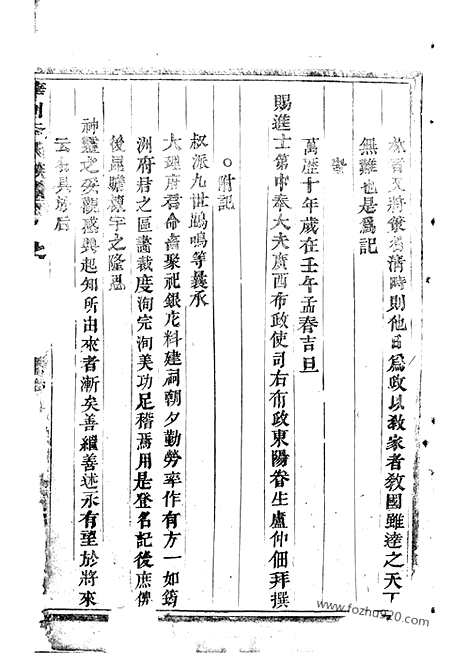 清時則他日爲政以敎家者敎國雖達之天下
無難也是爲記
萬歷十年歲在壬午孟春吉旦
賜進士第中奉大夫廣西布政使司右布政東陽眷生盧仲佃拜撰
○附記
叔派九世鵾鳴等義承
大理府君命鳩聚祀銀庀料建祠朝夕勤勞率作有方一如筠
洲府君之區畫裁度洵完洵美功足稽焉用是登名記後庶俾
後昆瞻棟宇之隆思
神靈之妥觀感興起知所由來者漸矣善繼善述永有望於將來
云
www.fozhu920.com